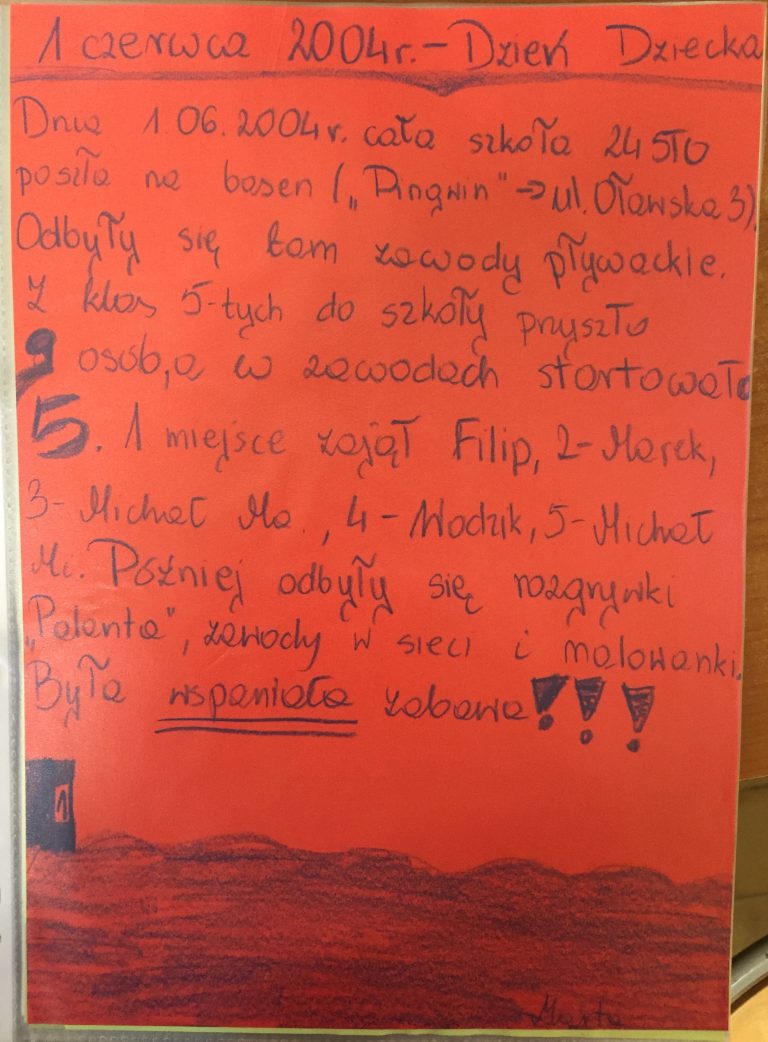 1 czerwca 2004r. – Dzień Dziecka
Dnia 1.06.2004r. cała szkoła 24 STO
poszła na basen („Pingwin" → ul. Oławska 3).
Odbyły się tam zawody pływackie.
Z klas 5-tych do szkoły przyszło
9 osób, a w zawodach startowało
5. 1 miejsce zajął Filip, 2-Marek,
3- Michał Ma., 4 – Wodzik, 5- Michał
Mi. Później odbyły się rozgrywki
„Palanta", zawody w sieci i malowanki.
Była wspaniała zabawa!!!
1
Marta